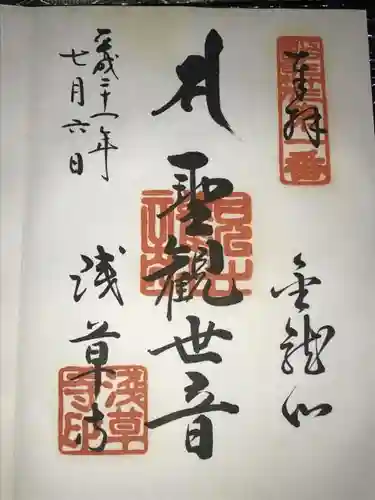 奉拝
金龍山
聖観世音
浅草寺
平成二十一年
七月六日
浅草寺印